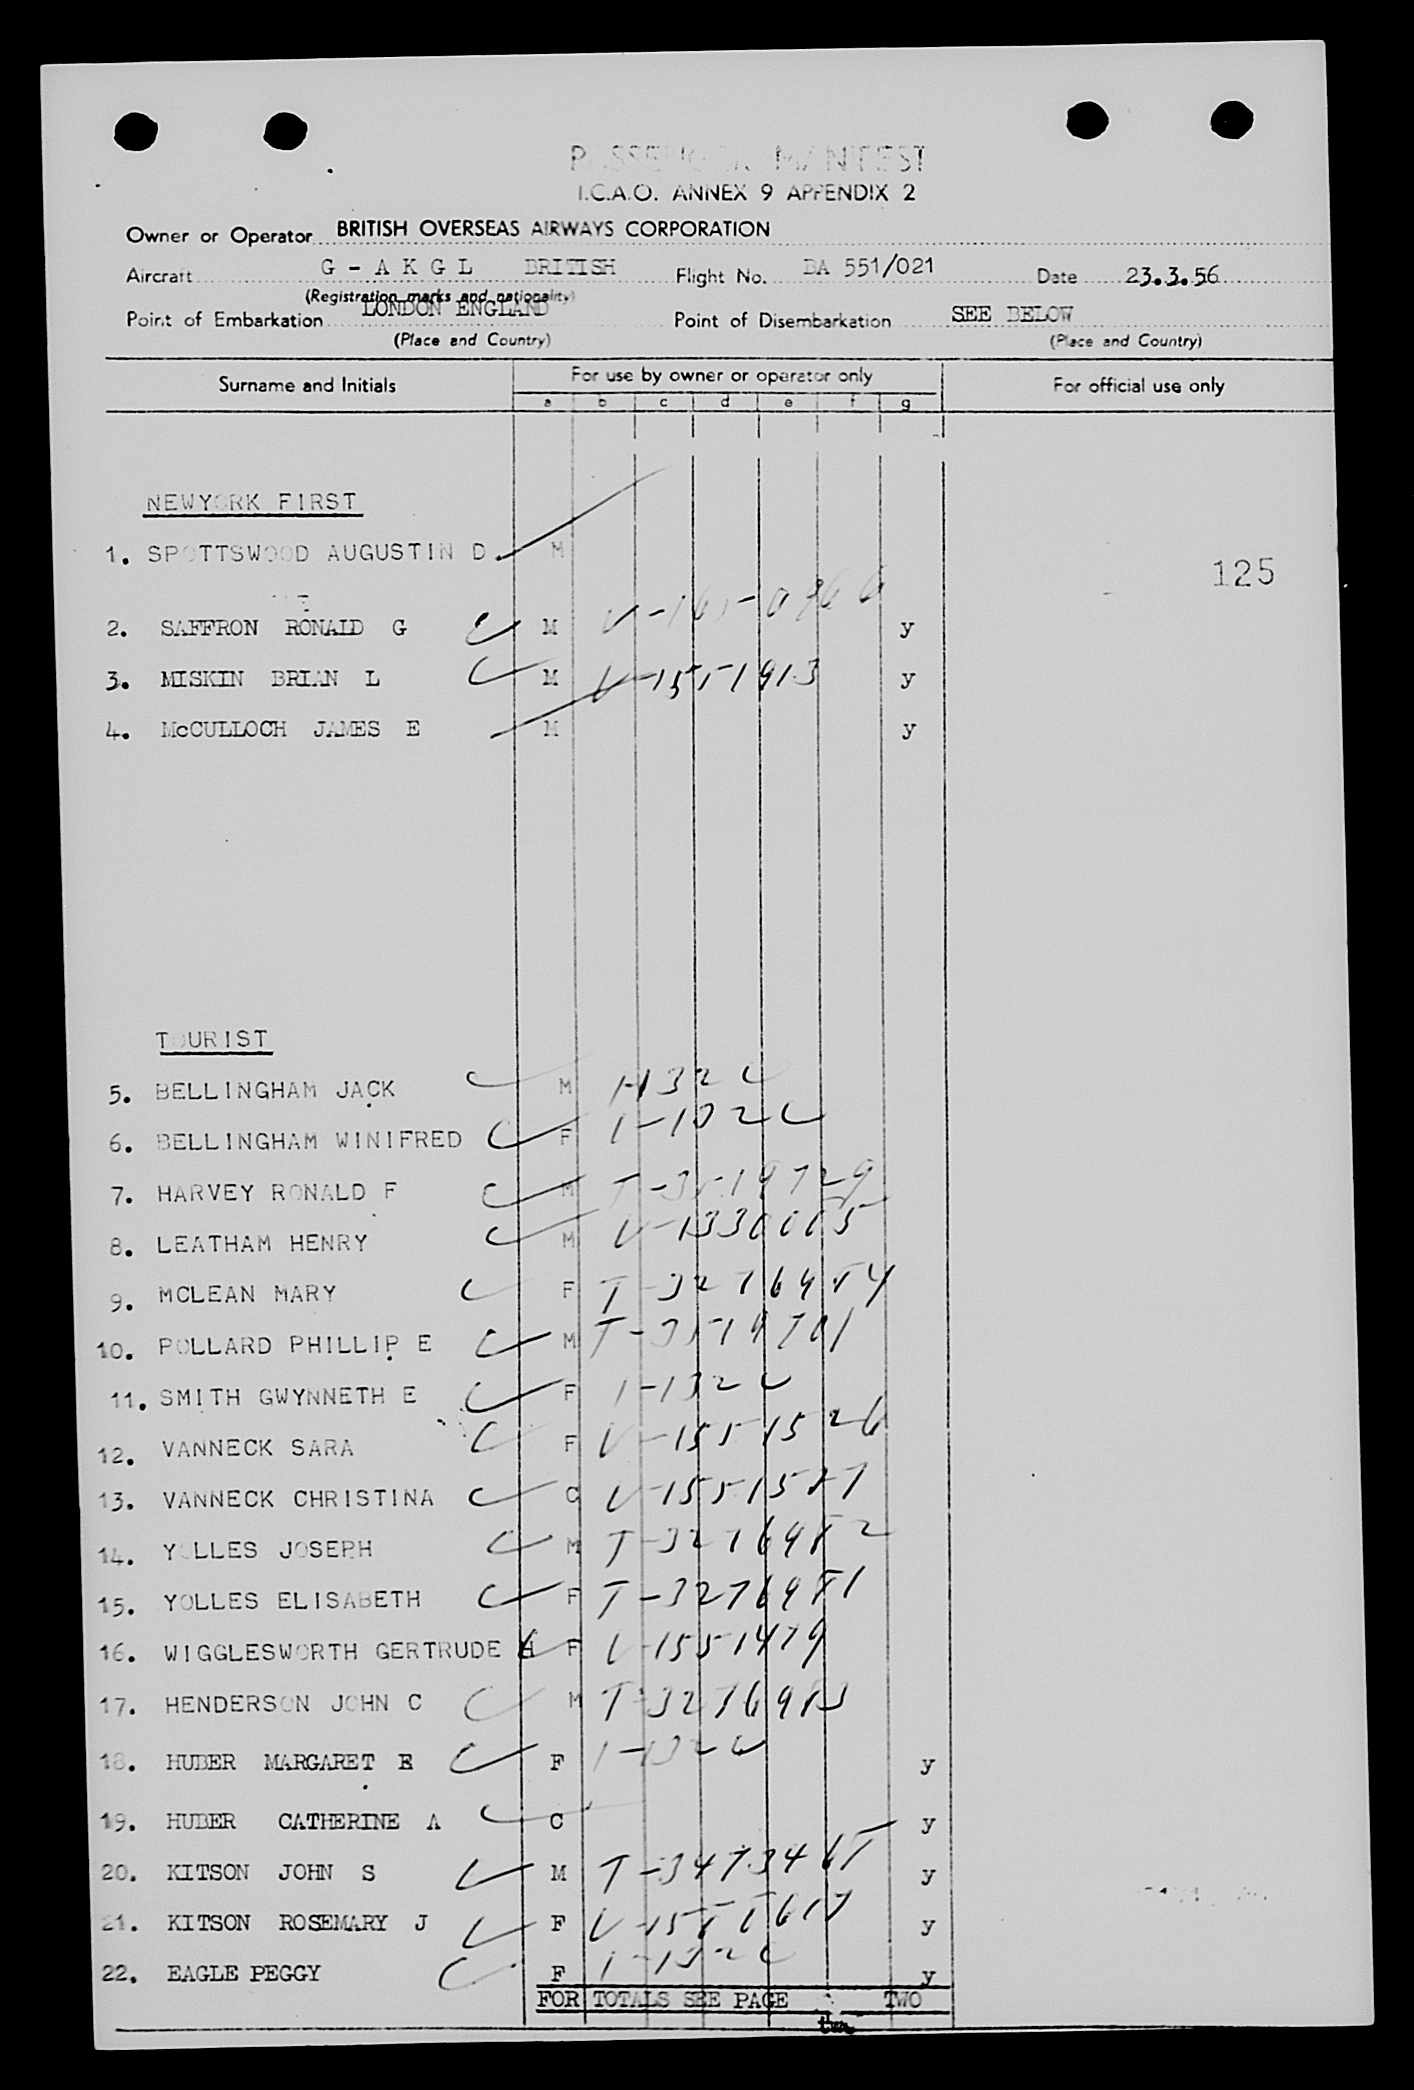 PASSENGER MANIFEST
I.C.A.O. ANNEX 9 APPENDIX 2
Owner or Operator BRITISH OVERSEAS AIRWAYS CORPORATION
Aircraft G - A K G L BRITISH Flight No. BA 551/021 Date 23.3.56
(Registration marks and nationality)
Point of Embarkation LONDON ENGLAND Point of Disembarkation SEE BELOW
(Place and Country) (Place and Country)
Surname and Initials For use by owner or operator only For official use only
a b c d e f g
NEWYORK FIRST
1. SPOTTSWOOD AUGUSTIN D M
125
2. SAFFRON RONALD G M y
3. MISKIN BRIAN L M V-1551913 y
4. McCULLOCH JAMES E M y
TOURIST
5. BELLINGHAM JACK M
6. BELLINGHAM WINIFRED F
7. HARVEY RONALD F M T-3519729
8. LEATHAM HENRY M
9. MCLEAN MARY F T-3276984
10. POLLARD PHILLIP E M T-3519701
11. SMITH GWYNNETH E F
12. VANNECK SARA F V-1551526
13. VANNECK CHRISTINA C V-1551527
14. YOLLES JOSEPH M T-3276982
15. YOLLES ELISABETH F T-3276981
16. WIGGLESWORTH GERTRUDE H F V-1551479
17. HENDERSON JOHN C M T-3276983
18. HUBER MARGARET E F y
19. HUBER CATHERINE A C y
20. KITSON JOHN S M T-3473468 y
21. KITSON ROSEMARY J F y
22. EAGLE PEGGY F y
FOR TOTALS SEE PAGE TWO